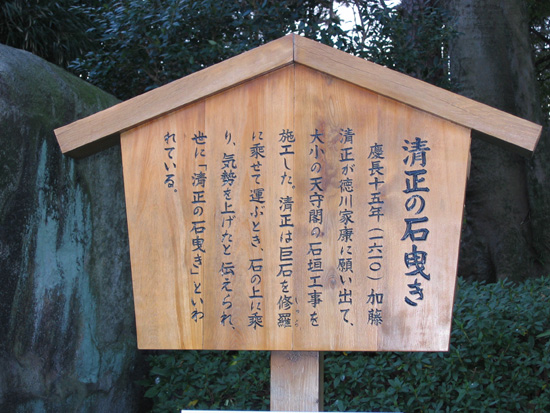 清正の石曳き
慶長十五年(一六一〇)加藤
清正が徳川家康に願い出て、
大小の天守閣の石垣工事を
施工した。清正は巨石を修羅
に乗せて運ぶとき、石の上に乘
り、気勢を上げたと伝えられ、
世に「清正の石曳き」といわ
れている。